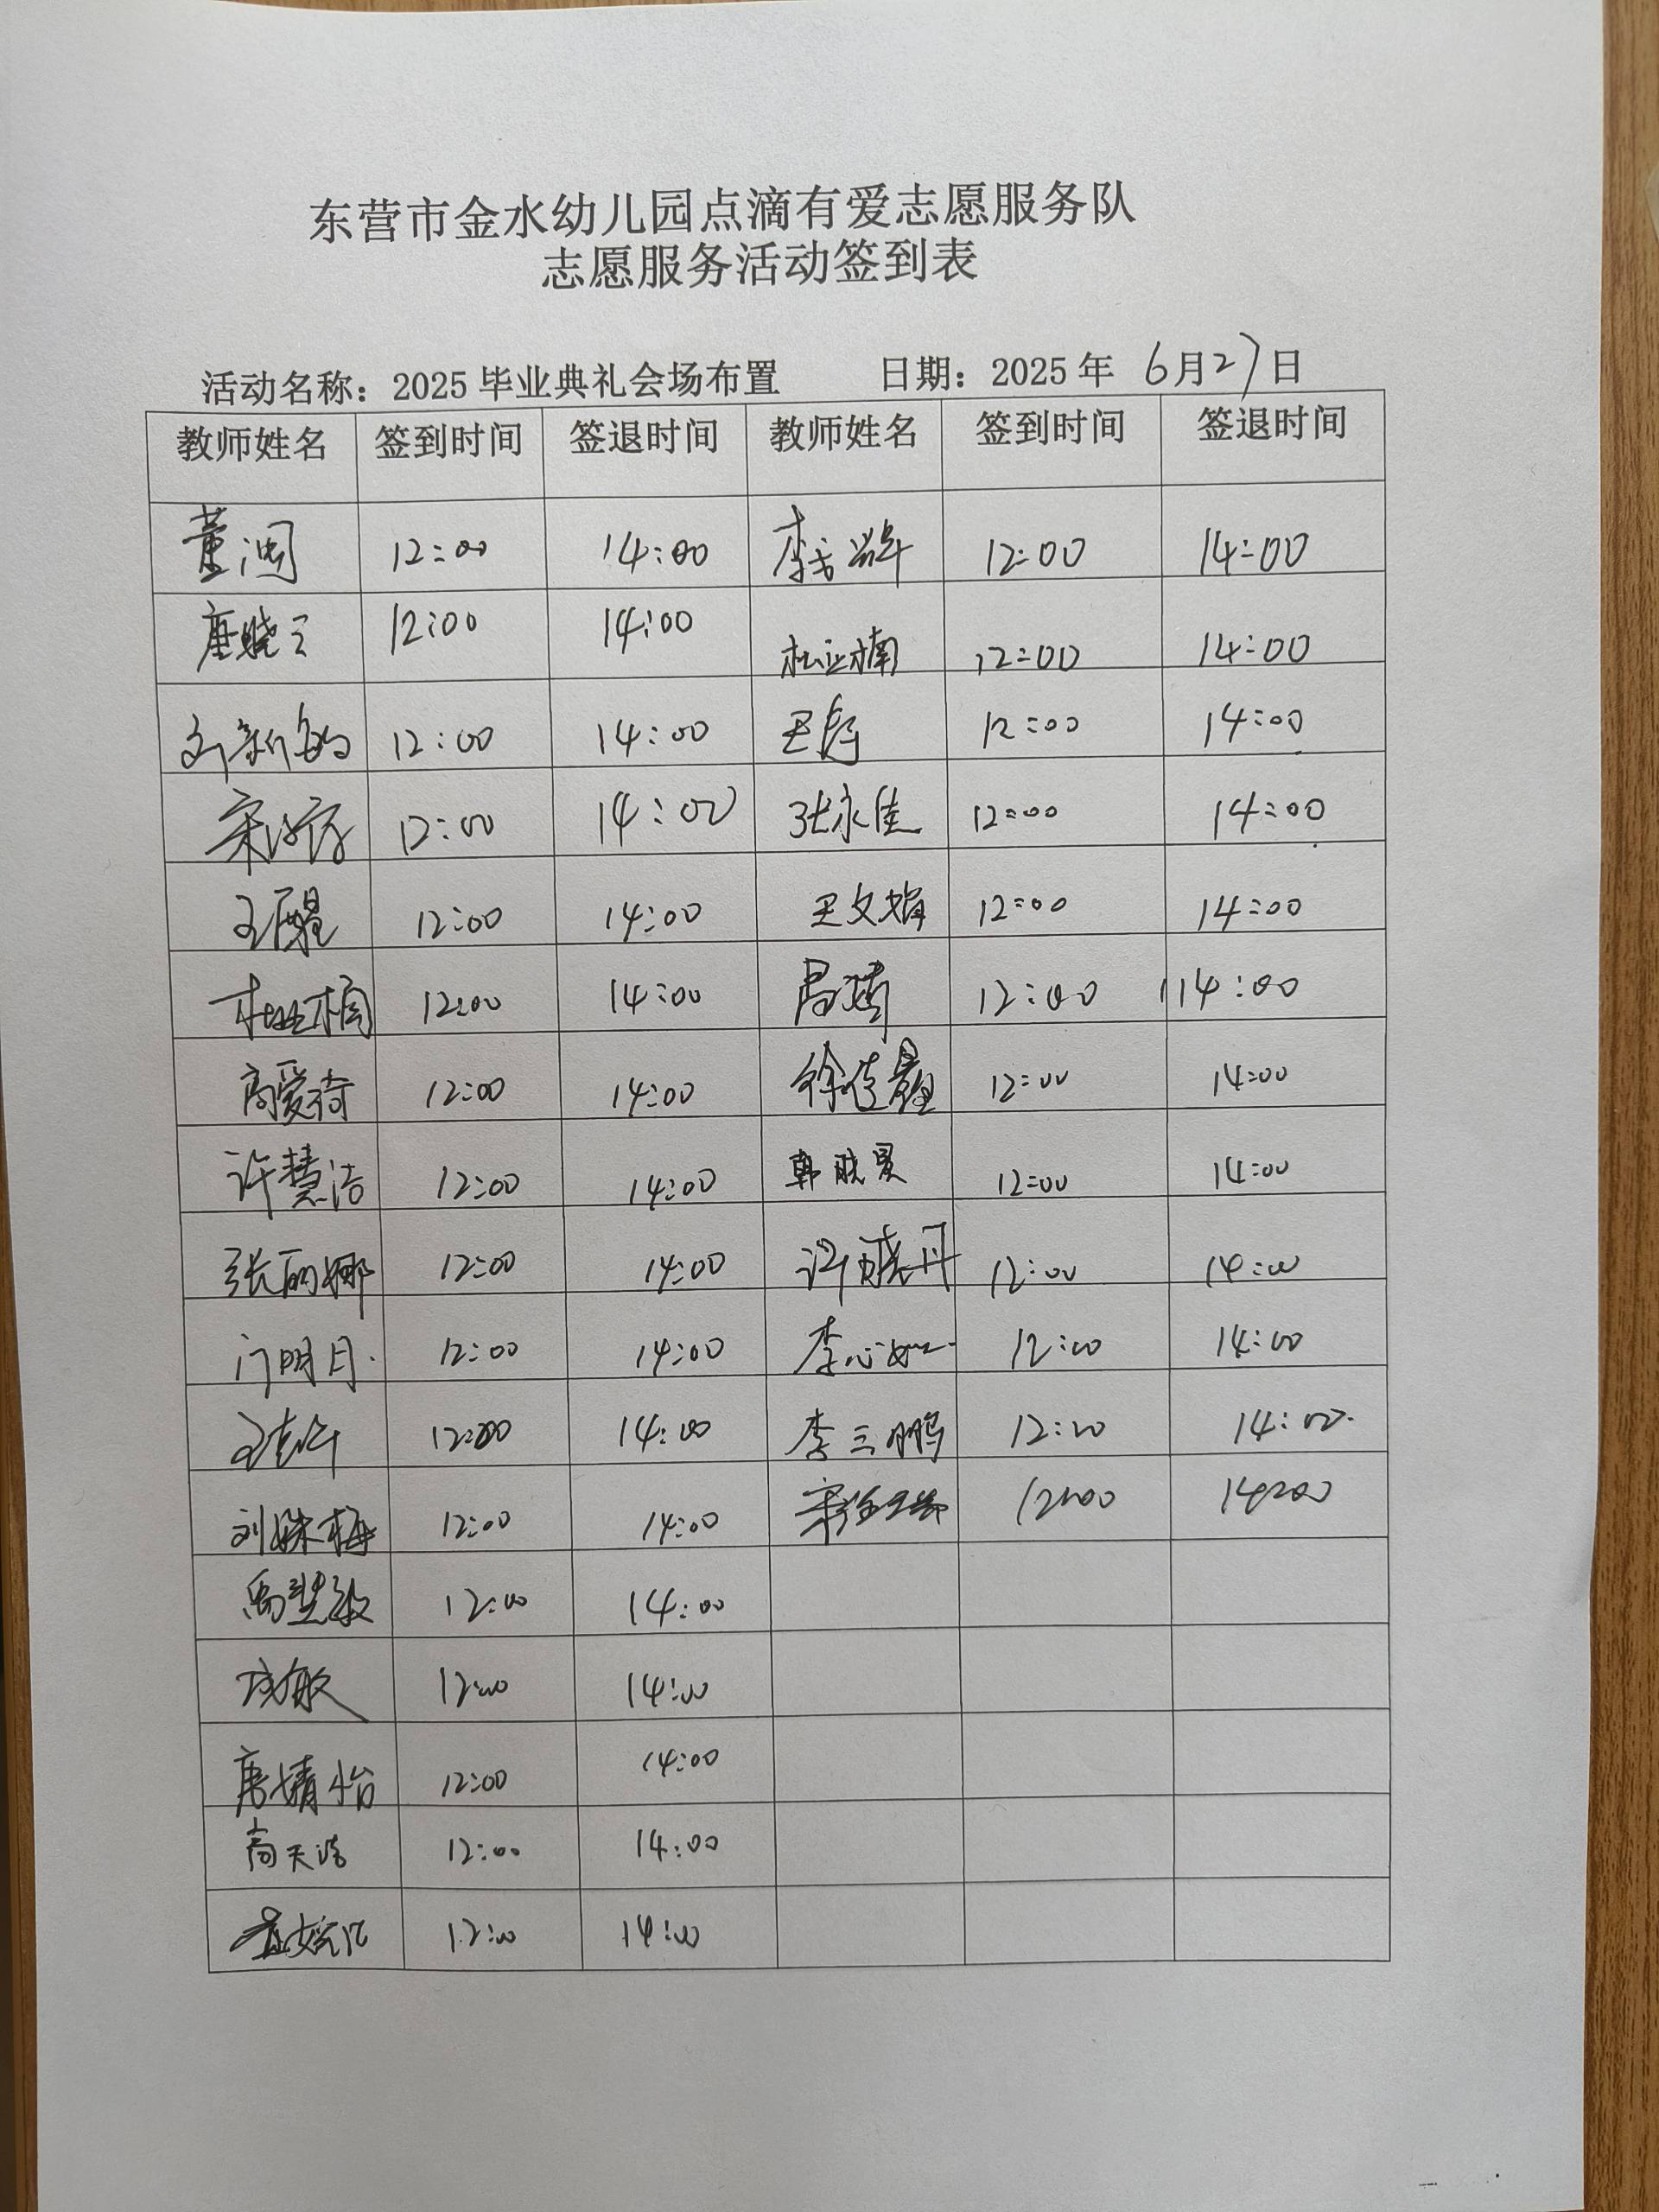 东营市金水幼儿园点滴有爱志愿服务队
志愿服务活动签到表
活动名称：2025毕业典礼会场布置 日期：2025年 6月27日
教师姓名 签到时间 签退时间 教师姓名 签到时间 签退时间
董润 12:00 14:00 12:00 14:00
唐晓云 12:00 14:00 12:00 14:00
12:00 14:00 12:00 14:00
12:00 14:00 张永佳 12:00 14:00
12:00 14:00 王文娟 12:00 14:00
12:00 14:00 12:00 14:00
高爱琦 12:00 14:00 12:00 14:00
许慧洁 12:00 14:00 韩晓昊 12:00 14:00
张丽娜 12:00 14:00 许晓丹 12:00 14:00
门明月 12:00 14:00 李心如 12:00 14:00
12:00 14:00 李三鹏 12:00 14:00
刘姝梅 12:00 14:00 12:00 14:00
12:00 14:00
12:00 14:00
唐婧怡 12:00 14:00
高天浩 12:00 14:00
12:00 14:00